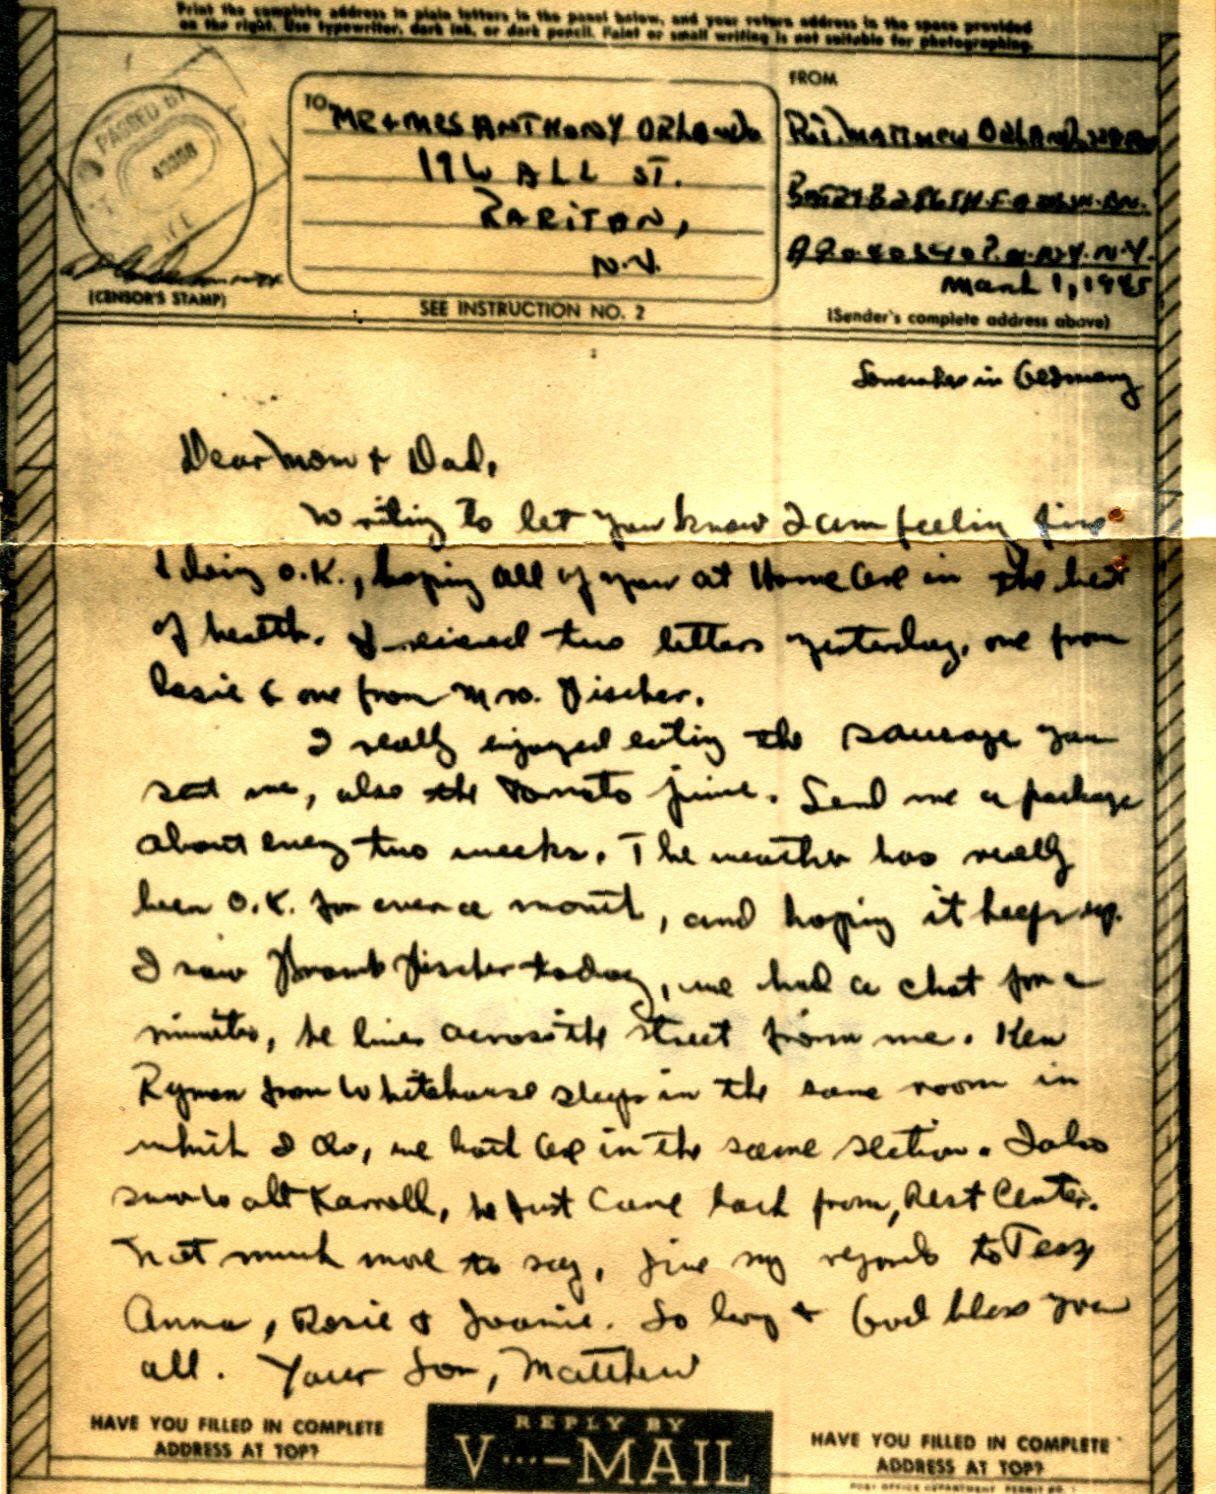 Print the complete address in plain letters in the panel below, and your return address in the space provided
on the right. Use typewriter, dark ink, or dark pencil. Faint or small writing is not suitable for photographing.
PASSED BY
43368
(CENSOR'S STAMP)
TO
MR + MRS ANTHONY ORLANDO
19 WALL ST.
RARITAN,
N.J.
SEE INSTRUCTION NO. 2
FROM
Pvt. MATTHEW ORLANDO
N.Y. N.Y.
March 1, 1945
(Sender's complete address above)
Somewhere in Germany
Dear Mom + Dad,
Writing to let you know I am feeling fine
& doing O.K., hoping all of you at Home are in the best
of health. I received two letters yesterday, one from
Rosie & one from Mrs. Fischer.
I really enjoyed eating the sausage you
sent me, also the tomato juice. Send me a package
about every two weeks. The weather has really
been O.K. for over a month, and hoping it keeps up.
I saw Frank Fischer today, we had a chat for a
minute, he lives across the street from me. Ken
Ryman from Whitehouse sleeps in the same room in
which I do, we both are in the same section. I also
saw Walt Karroll, he just came back from, Rest Center.
Not much more to say, give my regards to Tessy
Anna, Rosie & Joanie. So long + God bless you
all. Your Son, Matthew
HAVE YOU FILLED IN COMPLETE
ADDRESS AT TOP?
REPLY BY
V···—MAIL
HAVE YOU FILLED IN COMPLETE
ADDRESS AT TOP?
POST OFFICE DEPARTMENT PERMIT NO.